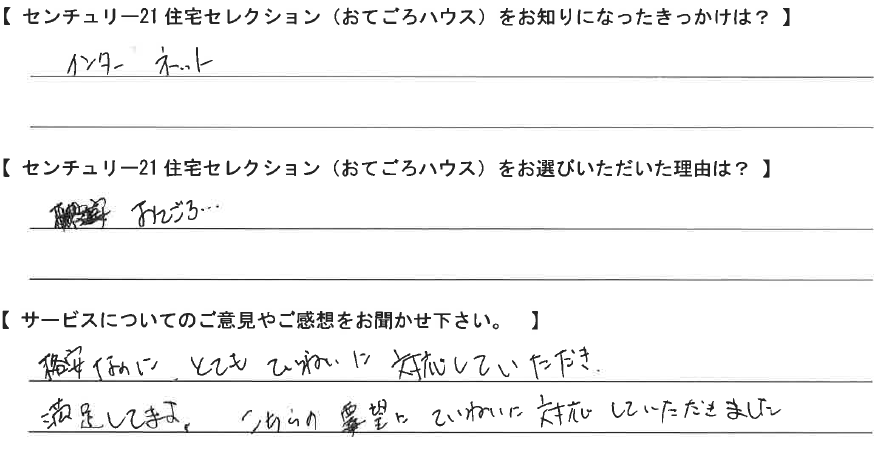 【 センチュリー21 住宅セレクション（おてごろハウス）をお知りになったきっかけは？ 】
インターネット
【 センチュリー21 住宅セレクション（おてごろハウス）をお選びいただいた理由は？ 】
おてごろ…
【 サービスについてのご意見やご感想をお聞かせ下さい。 】
格安なのに、とても ていねいに 対応していただき、
満足してます。 こちらの 要望に ていねいに 対応 していただきました